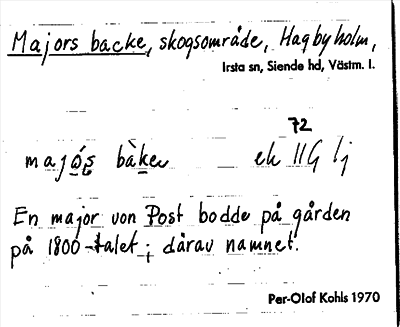 Majors backe, skogsområde, Hagbyholm,
Irsta sn, Siende hd, Västm. l.
72
majó̱s̱ bàḵen ek 11G lj
En major von Post bodde på gården
på 1800-talet; därav namnet.
Per-Olof Kohls 1970